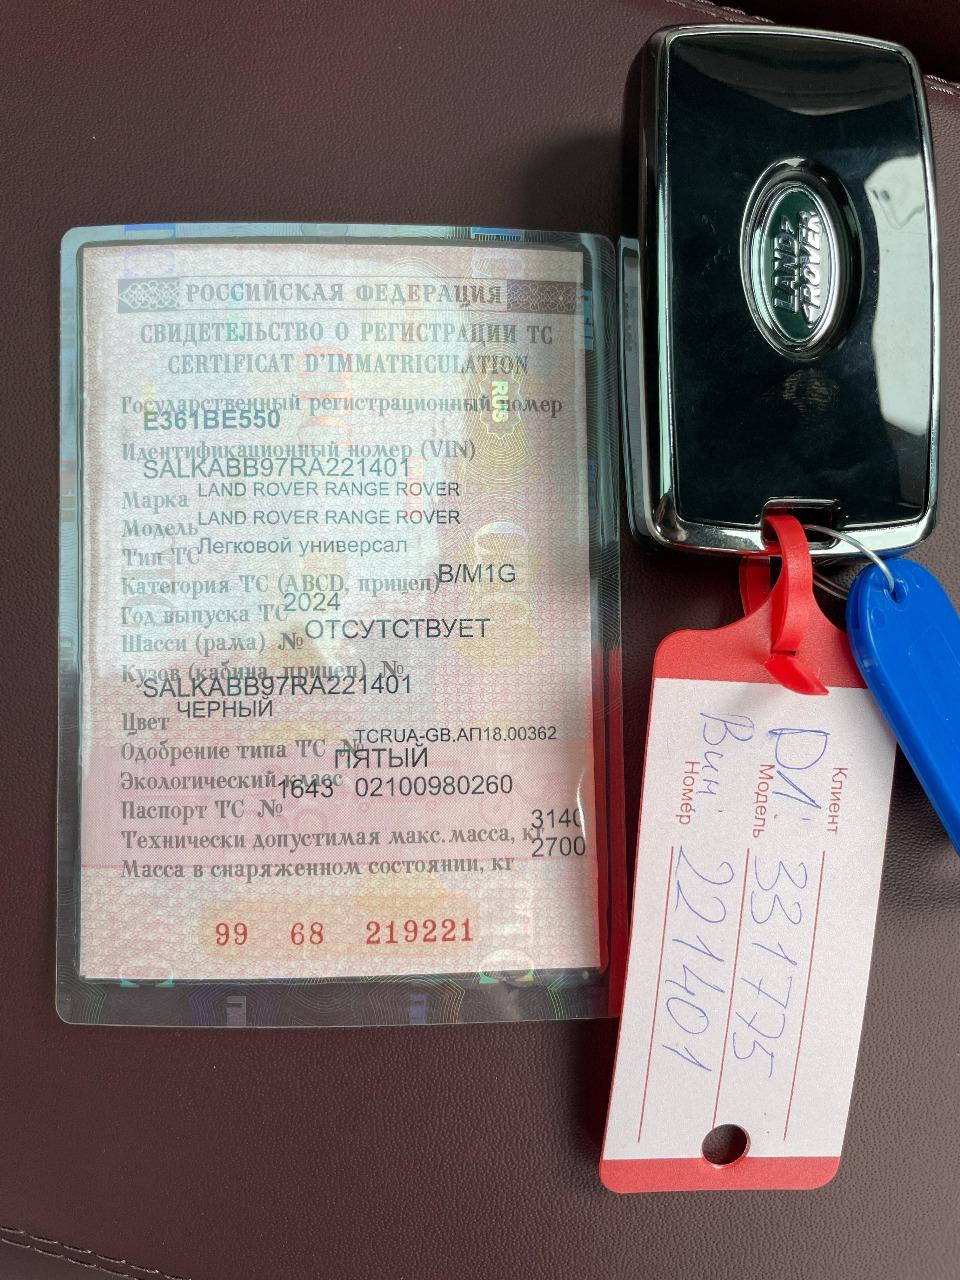 РОССИЙСКАЯ ФЕДЕРАЦИЯ
СВИДЕТЕЛЬСТВО О РЕГИСТРАЦИИ ТС
CERTIFICAT D'IMMATRICULATION
RUS
Государственный регистрационный номер
Е361ВЕ550
Идентификационный номер (VIN)
SALKABB97RA221401
Марка LAND ROVER RANGE ROVER
Модель LAND ROVER RANGE ROVER
Тип ТС Легковой универсал
Категория ТС (ABCD, прицеп) B/M1G
Год выпуска ТС 2024
Шасси (рама) № ОТСУТСТВУЕТ
Кузов (кабина, прицеп) №
SALKABB97RA221401
Цвет ЧЕРНЫЙ
Одобрение типа ТС № TCRUA-GB.АП18.00362
Экологический класс ПЯТЫЙ
Паспорт ТС № 1643 02100980260
Технически допустимая макс. масса, кг 3140
Масса в снаряженном состоянии, кг 2700
99 68 219221
LAND ROVER
Клиент
Модель 331775
Номер
Вин: 221401